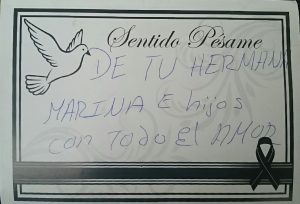 Sentido Pésame
DE TU HERMANA
MARINA E hijos
con Todo El AMOR